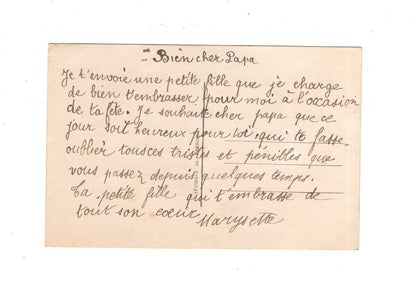 Bien cher Papa
Je t'envoie une petite fille que je charge
de bien t'embrasser pour moi à l'occasion
de ta fête. Je souhaite cher papa que ce
jour soit heureux pour toi, qui te fasse
oublier tousces tristes et pénibles que
vous passez depuis quelques temps.
Ta petite fille qui t'embrasse de
tout son cœur Marysette